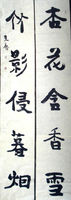 杏花含香雪
竹影侵暮烟